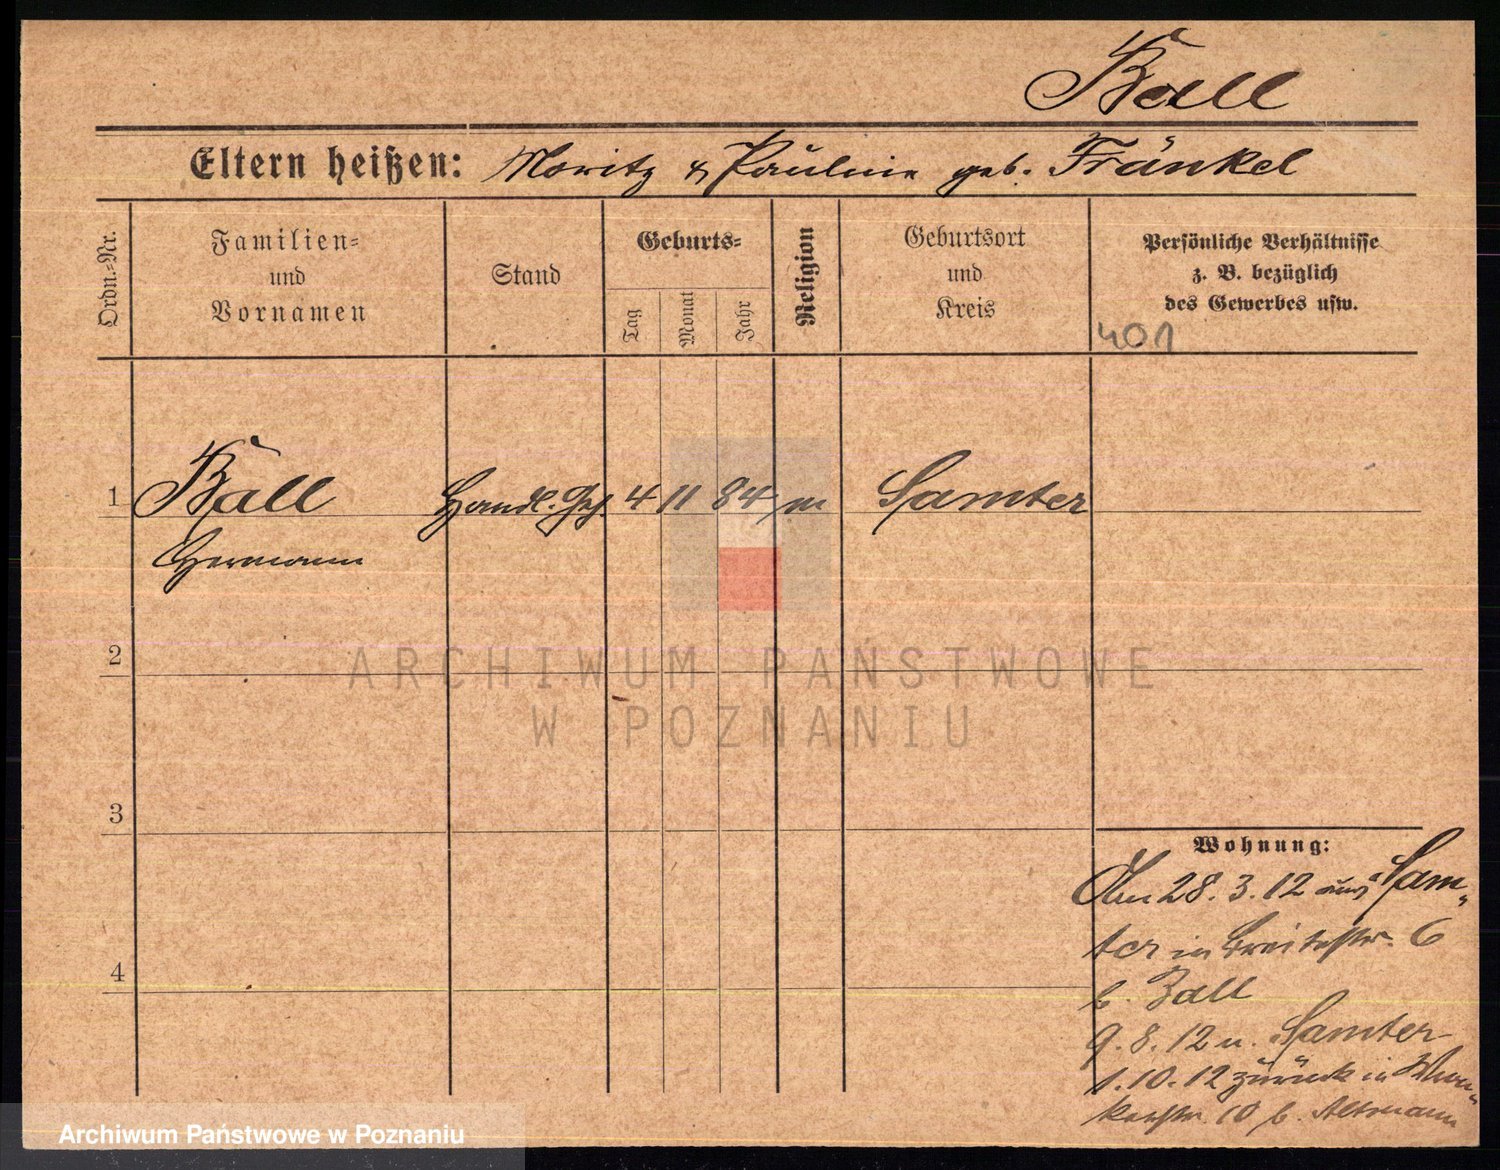 Ball
Eltern heißen: Moritz & Pauline geb. Fränkel
Ordn.-Nr.
Familien-
und
Vornamen
Stand
Geburts-
Tag
Monat
Jahr
Religion
Geburtsort
und
Kreis
Persönliche Verhältnisse
z. B. bezüglich
des Gewerbes usw.
401
1 Ball Handl. Geh. 4 11 84 m Samter
Hermann
2
ARCHIWUM PAŃSTWOWE
W POZNANIU
3
4
Wohnung:
Am 28.3.12 aus Sam-
ter in Breitestr. 6
b. Ball
9.8.12 n. Samter
1.10.12 zurück in
10 b. Altmann
Archiwum Państwowe w Poznaniu